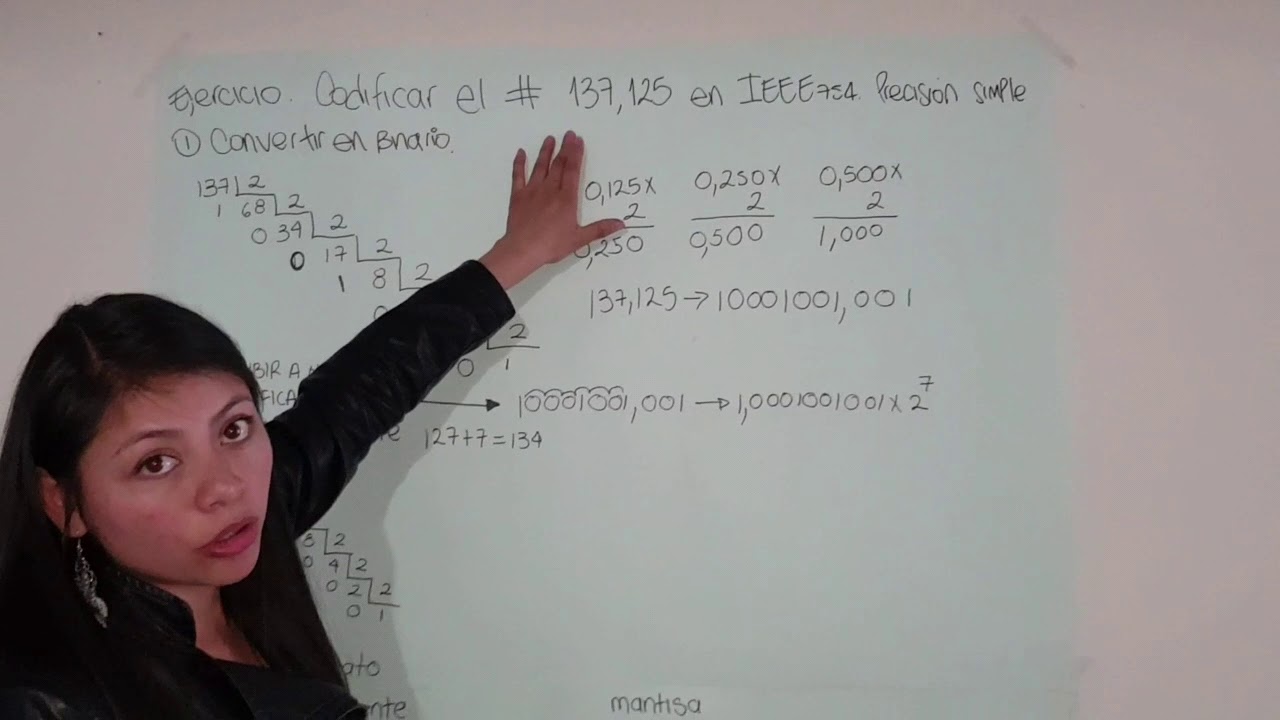 Ejercicio. Codificar el # 137,125 en IEEE754. Precisión simple
① Convertir en Binario.
137 2
1 68 2
0 34 2
0 17 2
1 8 2
2
0 1
0,125x 0,250x 0,500x
2 2 2
0,250 0,500 1,000
137,125→10001001,001
BIR A
FICA
10001001,001 → 1,0001001001 x 2^7
127+7=134
8 2
0 4 2
0 2 2
0 1
mantisa